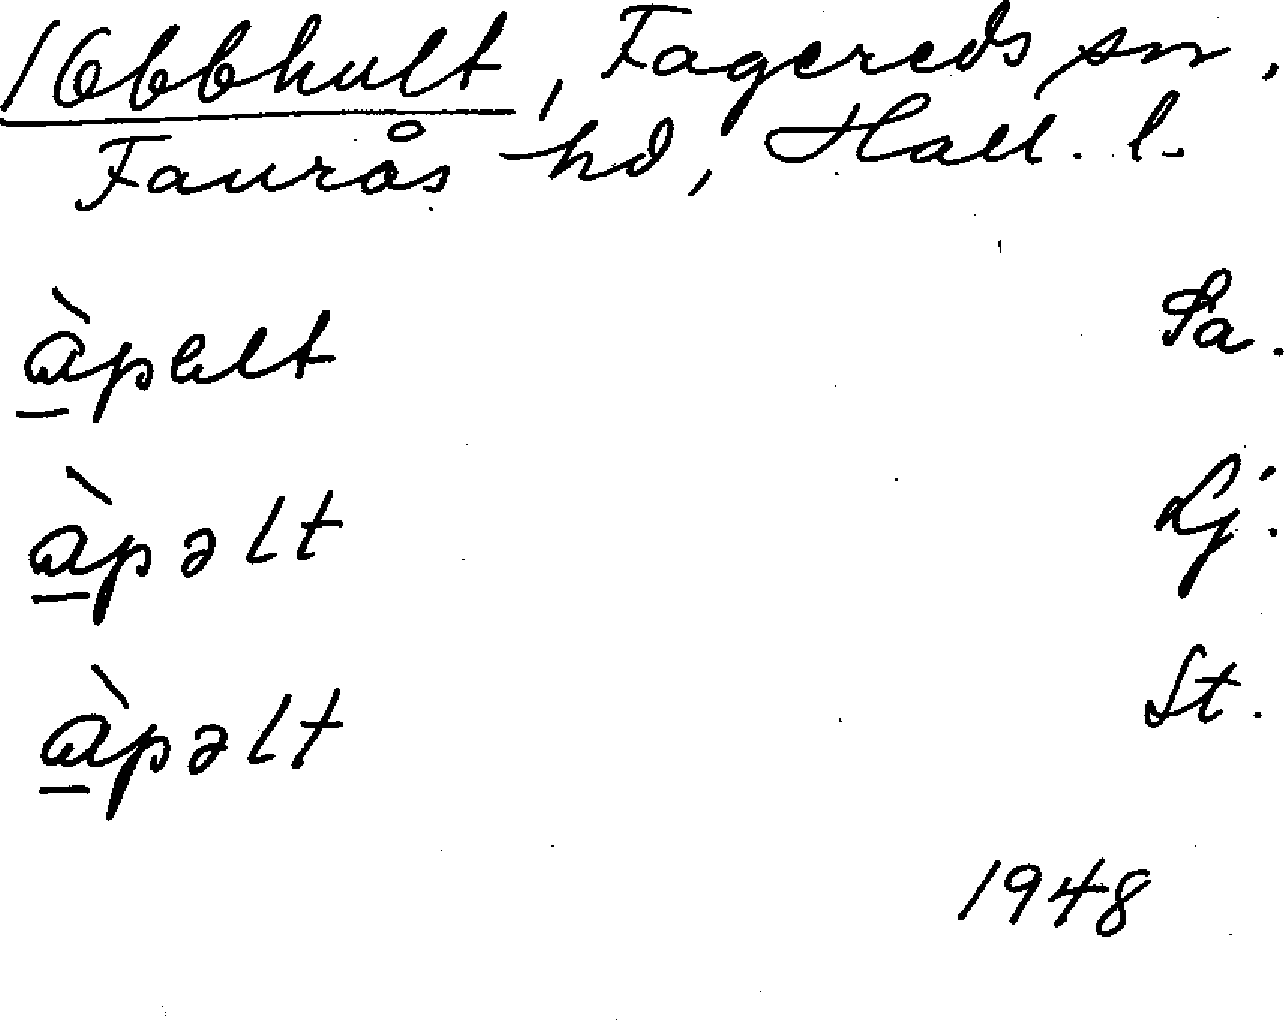 1 Obbhult, Fagereds sn.
Faurås hd, Hall. l.
àpelt Sa.
àpəlt Lj.
àpəlt St.
1948